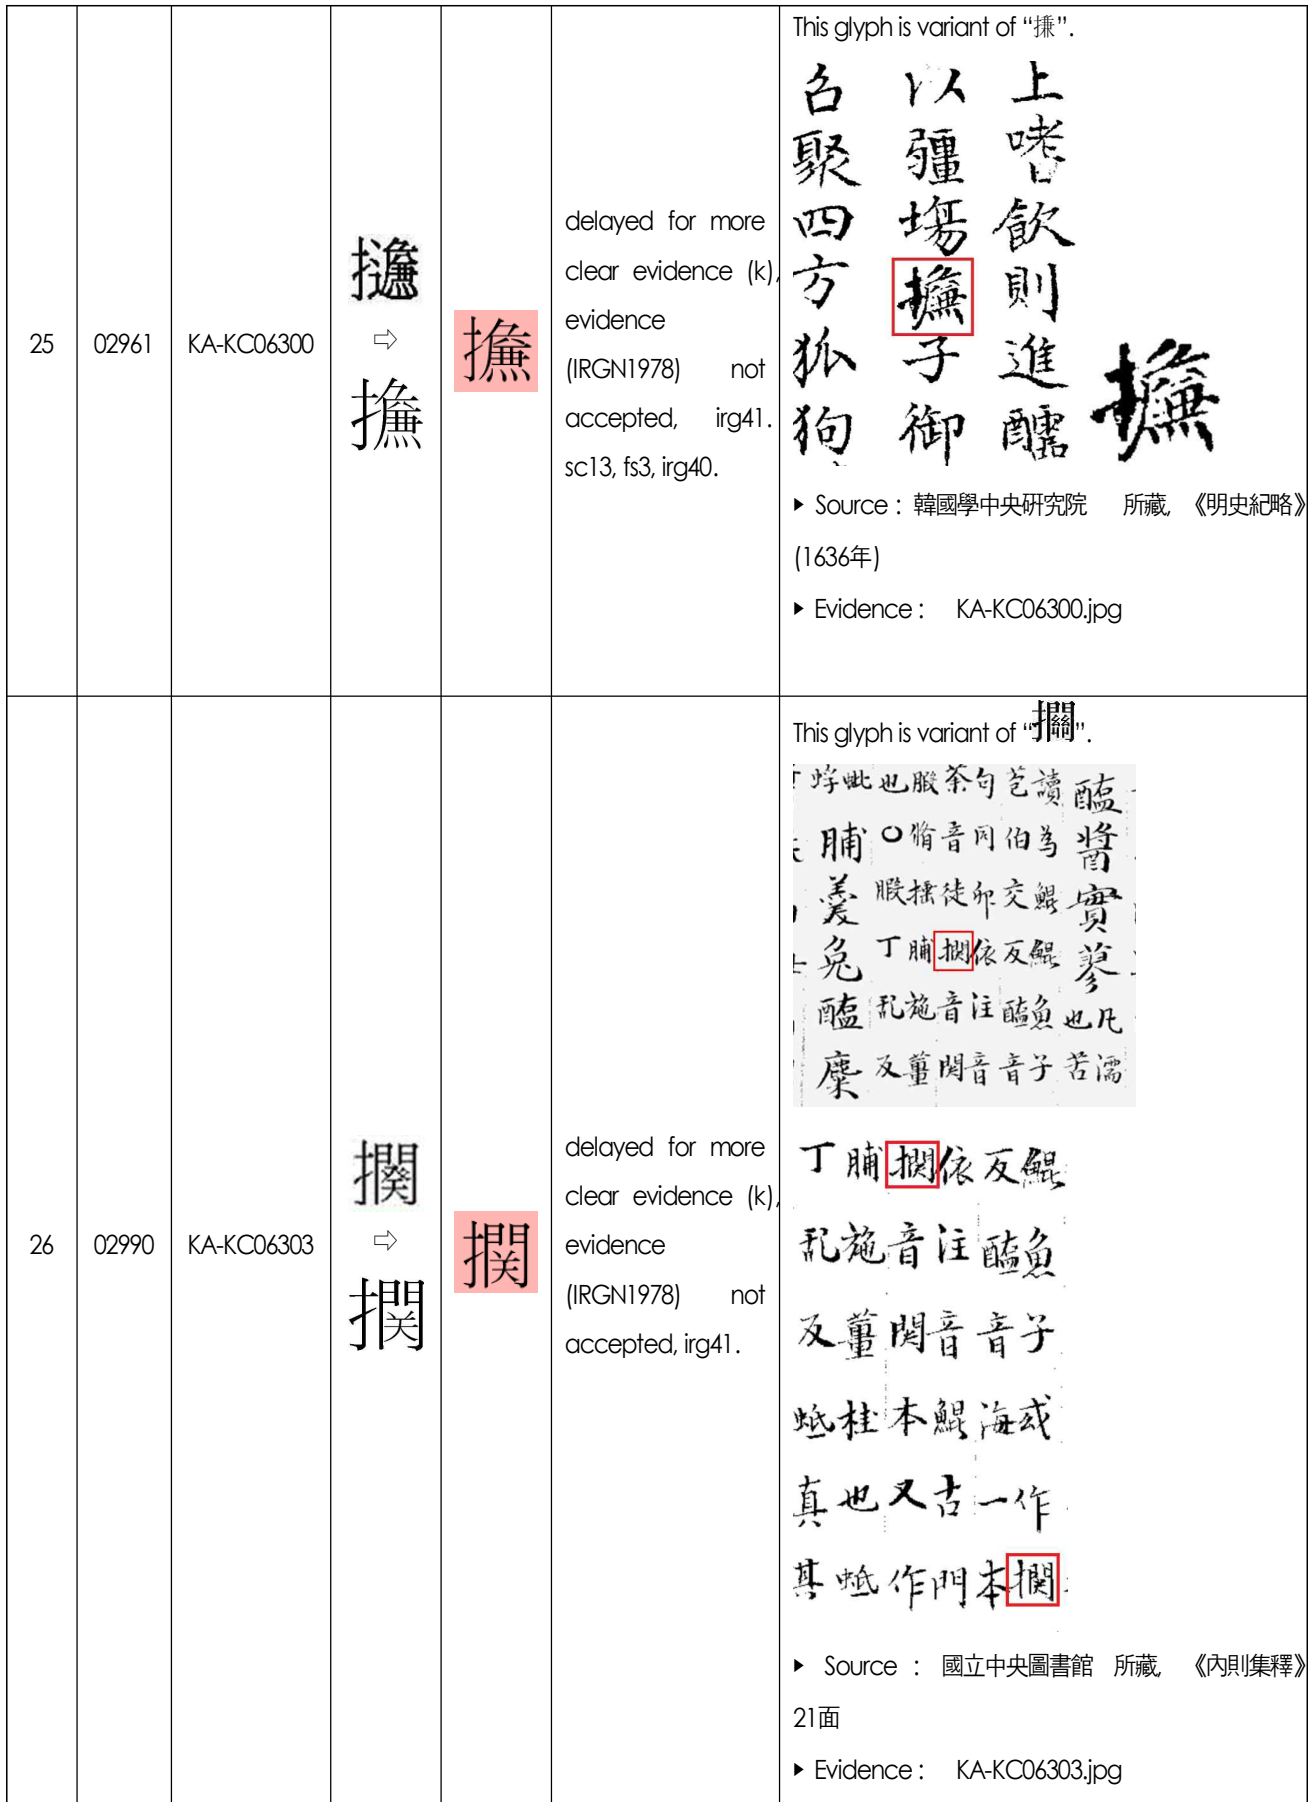 25
02961
KA-KC06300
⇨
delayed for more
clear evidence (k),
evidence
(IRGN1978) not
accepted, irg41.
sc13, fs3, irg40.
This glyph is variant of “”.
上嗜飲則進
以疆場子御
召聚四方狐狗
▶ Source : 韓國學中央研究院 所藏, 《明史紀略》
(1636年)
▶ Evidence : KA-KC06300.jpg
26
02990
KA-KC06303
⇨
delayed for more
clear evidence (k),
evidence
(IRGN1978) not
accepted, irg41.
This glyph is variant of “”.
醢醬實蓼也凡苦濡
讀為鯤鯤魚子
伯交反醢音
句同卯依注音
荼音徒音関
脯羹兔醢麋
鯤魚子或作
反醢音海一本
依注音鯤古門
関音本又作
脯施薑桂也蚳
丁乱反蚳真其
▶ Source : 國立中央圖書館 所藏, 《內則集釋》
21面
▶ Evidence : KA-KC06303.jpg